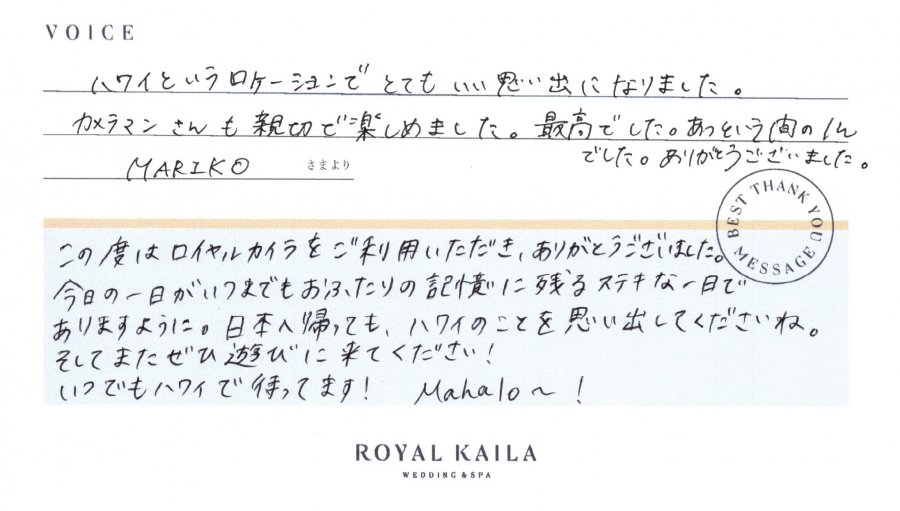 VOICE
ハワイというロケーションで とても いい思い出になりました。
カメラマンさんも親切で楽しめました。最高でした。あっという間の1h
でした。ありがとうございました。
MARIKO さまより
BEST THANK YOU MESSAGE
この度はロイヤルカイラをご利用いただき、ありがとうございました。
今日の一日がいつまでもおふたりの記憶に残るステキな一日で
ありますように。日本へ帰っても、ハワイのことを思い出してくださいね。
そしてまたぜひ遊びに来てください!
いつでもハワイで待ってます! Mahalo~!
ROYAL KAILA
WEDDING & SPA